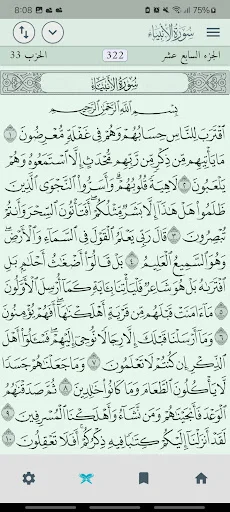 8:08 75%
سُورَةُ الأَنبِيَاء
الجزء السابع عشر 322 الحزب 33
سُورَةُ الأَنبِيَاءِ
بِسْمِ اللَّهِ الرَّحْمَٰنِ الرَّحِيمِ
اقْتَرَبَ لِلنَّاسِ حِسَابُهُمْ وَهُمْ فِي غَفْلَةٍ مُّعْرِضُونَ ١
مَا يَأْتِيهِم مِّن ذِكْرٍ مِّن رَّبِّهِم مُّحْدَثٍ إِلَّا اسْتَمَعُوهُ وَهُمْ
يَلْعَبُونَ ٢ لَاهِيَةً قُلُوبُهُمْ وَأَسَرُّوا النَّجْوَى الَّذِينَ
ظَلَمُوا هَلْ هَٰذَا إِلَّا بَشَرٌ مِّثْلُكُمْ أَفَتَأْتُونَ السِّحْرَ وَأَنتُمْ
تُبْصِرُونَ ٣ قَالَ رَبِّي يَعْلَمُ الْقَوْلَ فِي السَّمَاءِ وَالْأَرْضِ
وَهُوَ السَّمِيعُ الْعَلِيمُ ٤ بَلْ قَالُوا أَضْغَاثُ أَحْلَامٍ بَلِ
افْتَرَاهُ بَلْ هُوَ شَاعِرٌ فَلْيَأْتِنَا بِآيَةٍ كَمَا أُرْسِلَ الْأَوَّلُونَ
٥ مَا آمَنَتْ قَبْلَهُم مِّن قَرْيَةٍ أَهْلَكْنَاهَا أَفَهُمْ يُؤْمِنُونَ
٦ وَمَا أَرْسَلْنَا قَبْلَكَ إِلَّا رِجَالًا نُّوحِي إِلَيْهِمْ فَاسْأَلُوا أَهْلَ
الذِّكْرِ إِن كُنتُمْ لَا تَعْلَمُونَ ٧ وَمَا جَعَلْنَاهُمْ جَسَدًا
لَّا يَأْكُلُونَ الطَّعَامَ وَمَا كَانُوا خَالِدِينَ ٨ ثُمَّ صَدَقْنَاهُمُ
الْوَعْدَ فَأَنجَيْنَاهُمْ وَمَن نَّشَاءُ وَأَهْلَكْنَا الْمُسْرِفِينَ ٩
لَقَدْ أَنزَلْنَا إِلَيْكُمْ كِتَابًا فِيهِ ذِكْرُكُمْ أَفَلَا تَعْقِلُونَ ١٠